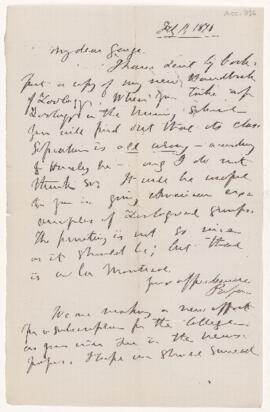 ACC. 936
Feb 1, 1876
My dear George.
I have sent by book-
post a copy of my new Handbook
of Zoology. When you take up
Zoology in the School
you will find out that its class-
ification is all wrong - according
to Huxley &c - and I do not
think so. It will be useful
to you in giving American ex-
amples of Zoological groups.
The printing is not so nice
as it should be; but that
is a la Montreal.
your affectionate
Papa
We are making a new effort
for a subscription for the College
as you will see in the news-
papers. I hope we shall succeed.